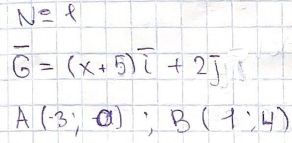 № 1
G̅ = (x+5) i̅ + 2 j̅
A (-3; 0) ; B (1; 4)